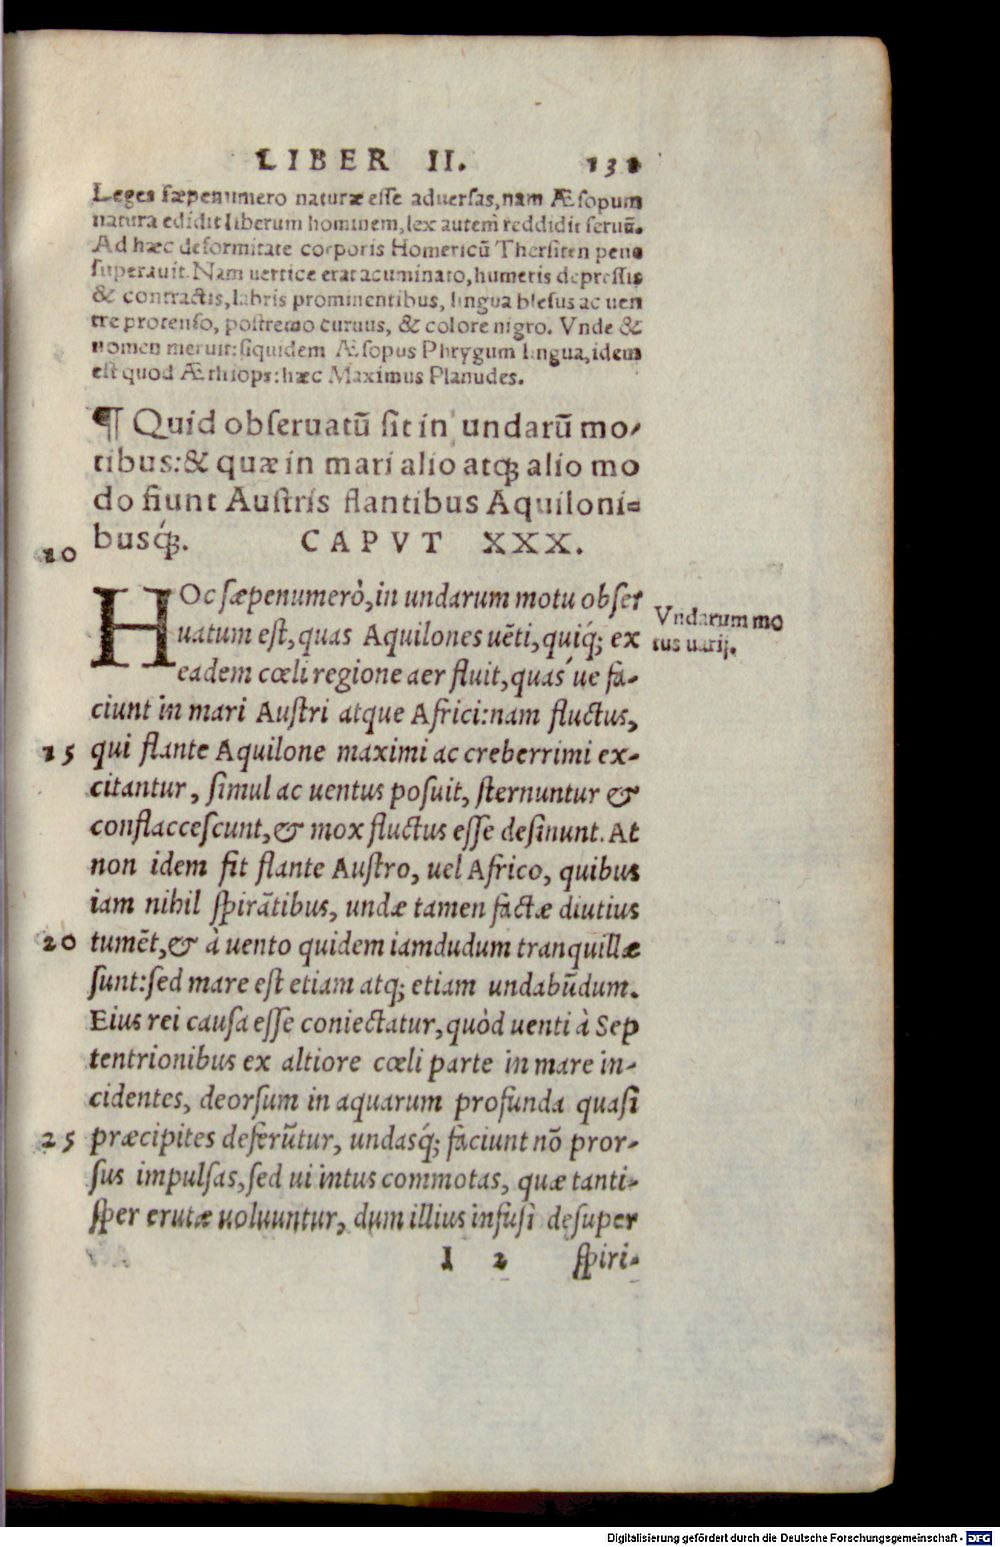 LIBER II. 131
Leges sæpenumero naturæ esse aduersas, nam Æsopum
natura edidit liberum hominem, lex autem reddidit seruū.
Ad hæc deformitate corporis Homericū Thersiten pene
superauit. Nam uertice erat acuminato, humeris depressis
& contractis, labris prominentibus, lingua blesus ac uen
tre protenso, postremo curuus, & colore nigro. Vnde &
nomen meruit: siquidem Æsopus Phrygum lingua, idem
est quod Æthiops: hæc Maximus Planudes.
¶ Quid obseruatū sit in undarū mo-
tibus: & quæ in mari alio atq; alio mo
do fiunt Austris flantibus Aquiloni=
busq́;. CAPVT XXX.
10
HOc sæpenumerò, in undarum motu obser
uatum est, quas Aquilones uēti, quiq́; ex
eadem cœli regione aer fluit, quas ́ue fa-
ciunt in mari Austri atque Africi: nam fluctus,
15 qui flante Aquilone maximi ac creberrimi ex-
citantur, simul ac uentus posuit, sternuntur &
conflaccescunt, & mox fluctus esse desinunt. At
non idem fit flante Austro, uel Africo, quibus
iam nihil spirātibus, undæ tamen factæ diutius
20 tumēt, & à uento quidem iamdudum tranquillæ
sunt: sed mare est etiam atq; etiam undabūdum.
Eius rei causa esse coniectatur, quòd uenti à Sep
tentrionibus ex altiore cœli parte in mare in-
cidentes, deorsum in aquarum profunda quasi
25 præcipites deferūtur, undasq́; faciunt nō pror-
sus impulsas, sed ui intus commotas, quæ tanti-
sper erutæ uoluuntur, dum illius infusi desuper
I 2 spiri-
Vndarum mo
tus uarij.
Digitalisierung gefördert durch die Deutsche Forschungsgemeinschaft - DFG